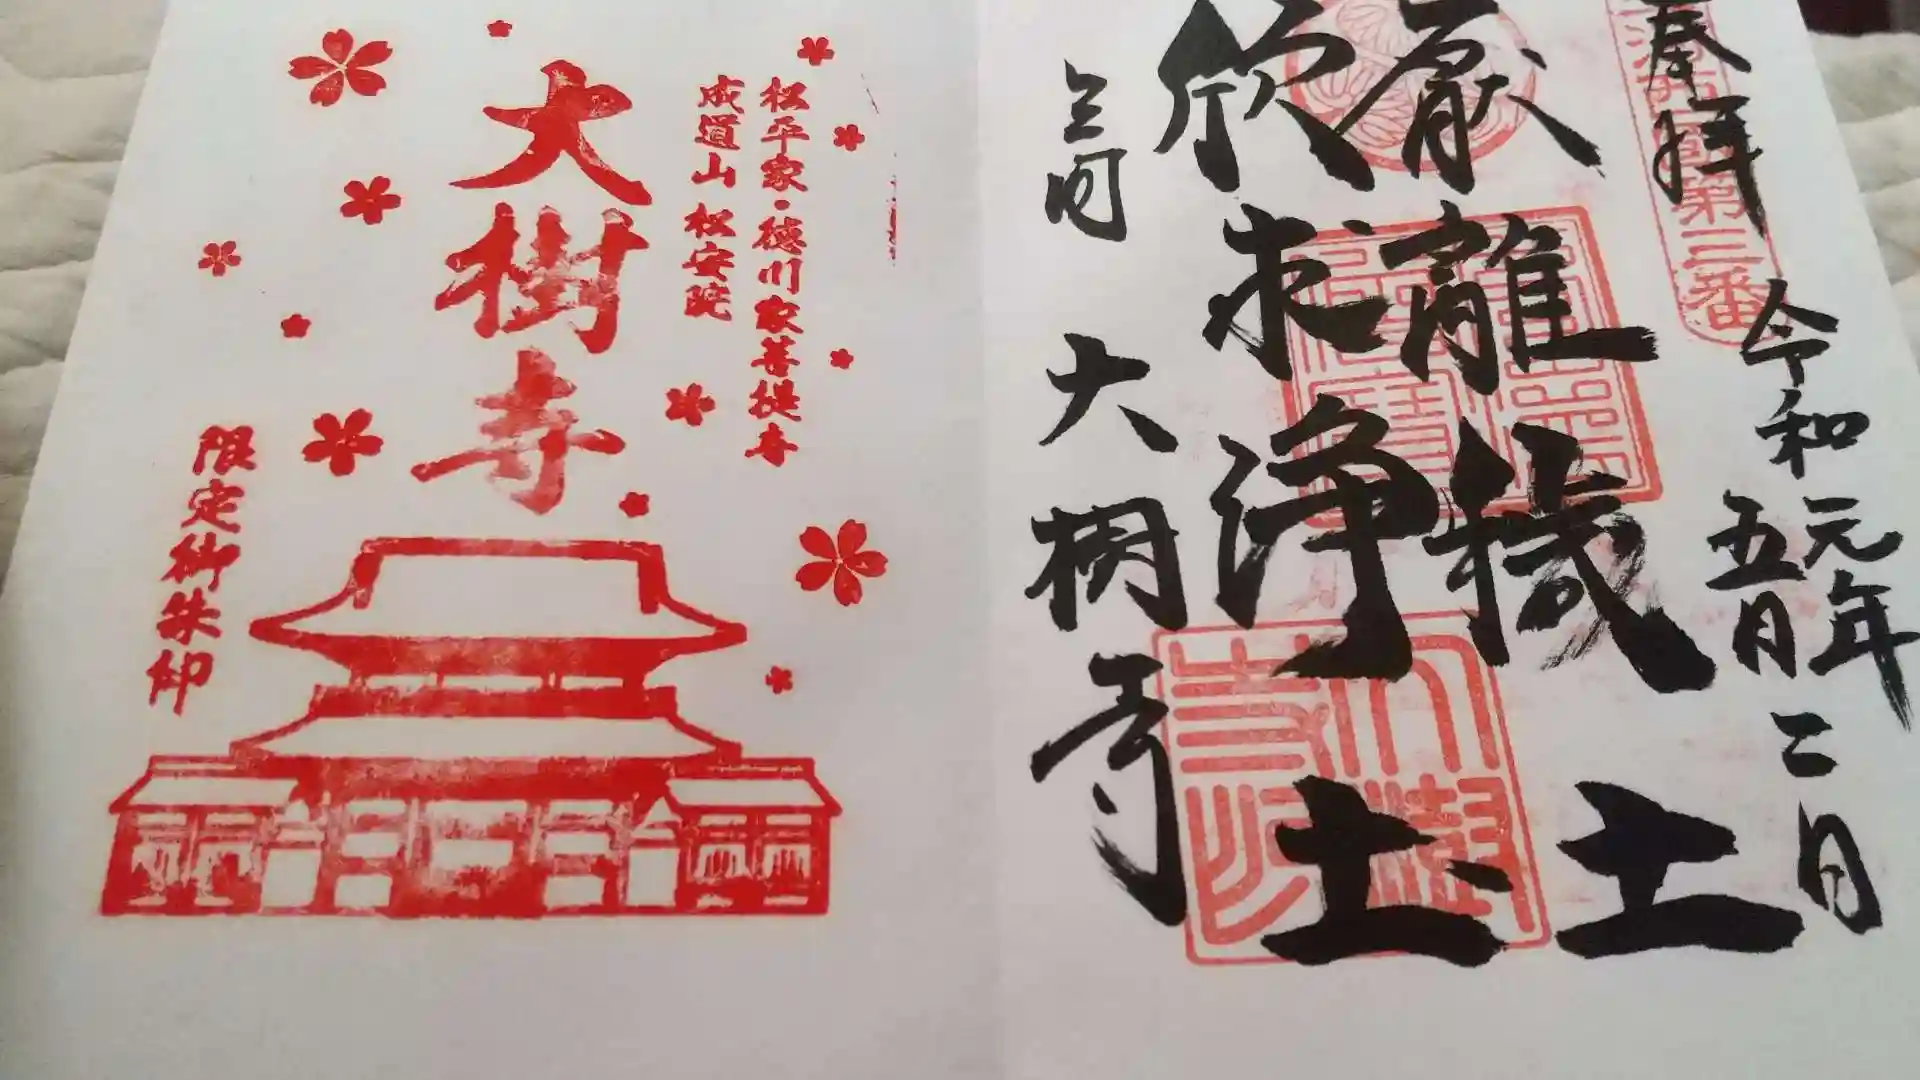 奉拝
第三番
令和元年
五月二日
厭離穢土
欣求浄土
三河 大樹寺
大樹寺印
松平家・徳川家菩提寺
成道山 松安院
大樹寺
限定御朱印